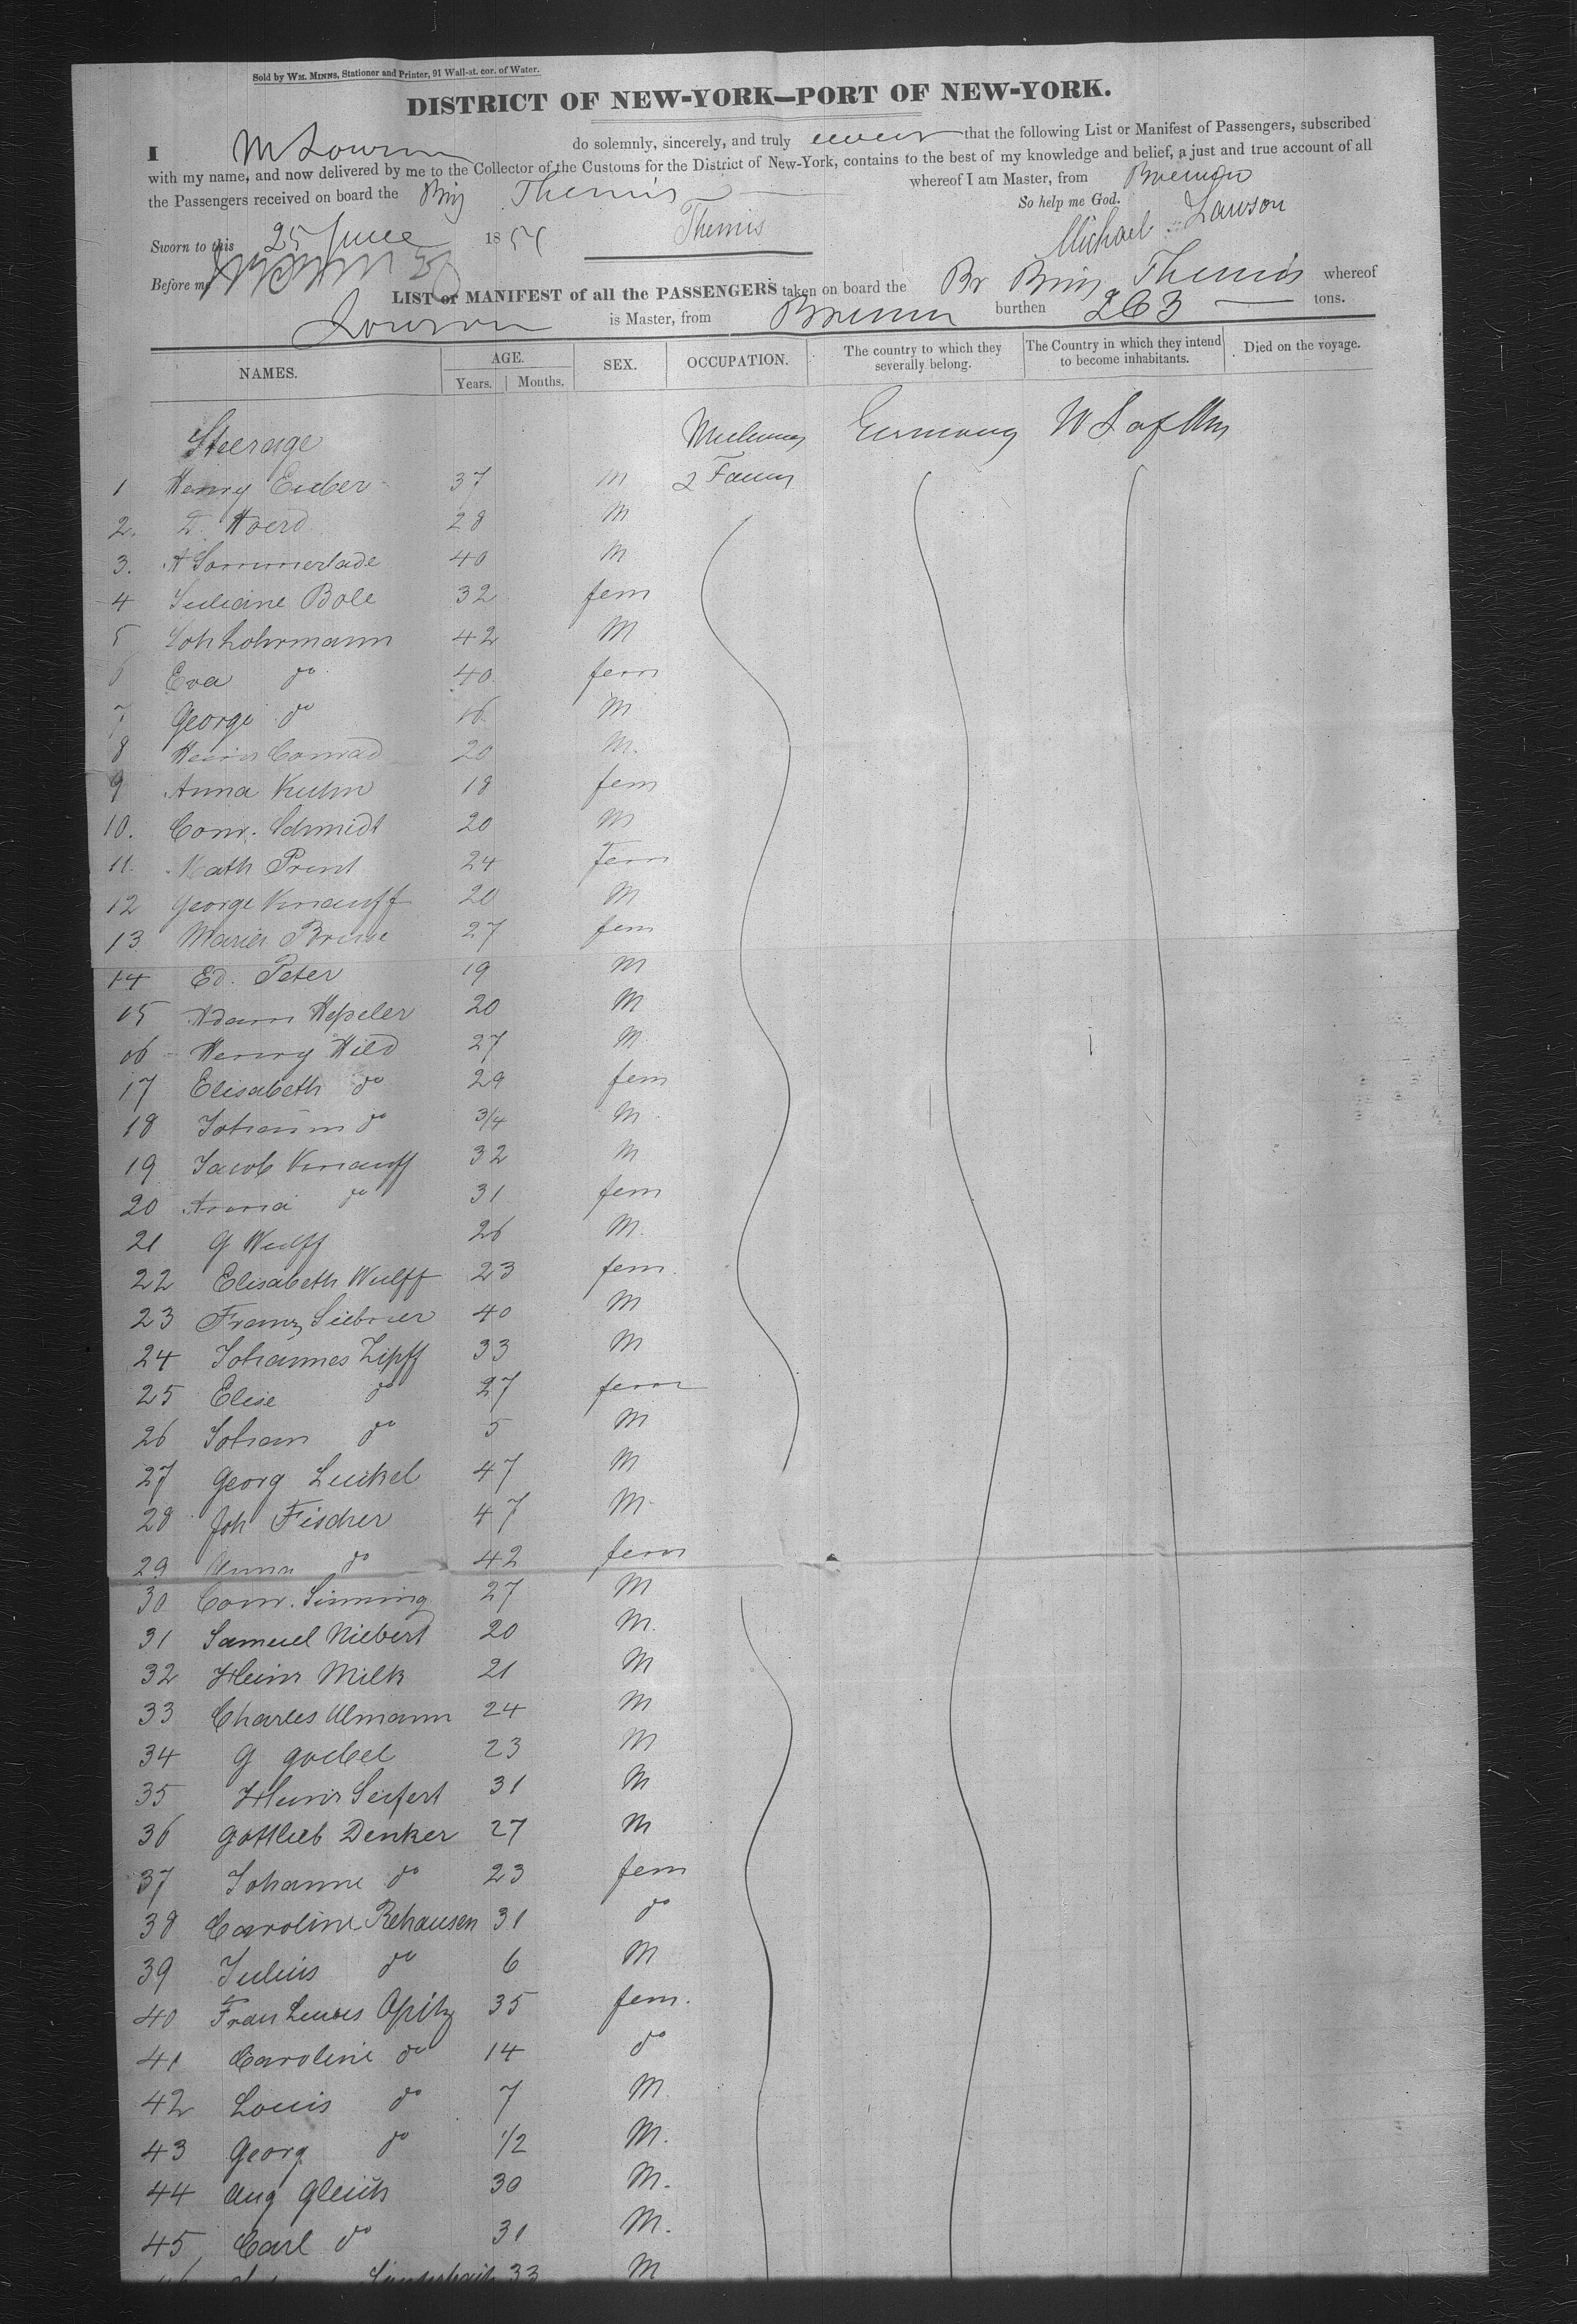 Sold by WM. MINNS, Stationer and Printer, 91 Wall-st. cor. of Water.
DISTRICT OF NEW-YORK—PORT OF NEW-YORK.
I M Lawson do solemnly, sincerely, and truly swear that the following List or Manifest of Passengers, subscribed
with my name, and now delivered by me to the Collector of the Customs for the District of New-York, contains to the best of my knowledge and belief, a just and true account of all
the Passengers received on board the Brig Themis whereof I am Master, from Bremen
So help me God.
Sworn to this 25 June 1854 Themis Michael Lawson
Before me
LIST or MANIFEST of all the PASSENGERS taken on board the Br Brig Themis whereof
Lawson is Master, from Bremen burthen 263 tons.
NAMES. AGE. Years. Months. SEX. OCCUPATION. The country to which they severally belong. The Country in which they intend to become inhabitants. Died on the voyage.
Steerage Germany
1 Henry 37 M
2. 28 M
3. A Sommerlade 40 M
4 Juliane Bole 32 fem
5 Joh Lohrmann 42 M
6 Eva do 40 fem
7 George do 16 M
8 Heinr Conrad 20 M.
9 Anna Kuhn 18 fem
10. Conr. Schmidt 20 M
11. Kath 24 Fem
12 George Knauff 20 M
13 Maria 27 fem
14 Ed. Peter 19 M
15 Adam Hepeler 20 M
16 Henry Hild 27 M
17 Elisabeth do 29 fem
18 Johann do 3/4 M
19 Jacob Knauff 32 M
20 Anna do 31 fem
21 G Wulff 26 M.
22 Elisabeth Wulff 23 fem.
23 Franz 40 M
24 Johannes Zipff 33 M
25 Elise do 27 fem
26 Johan do 5 M
27 Georg Luckel 47 M
28 Joh Fischer 47 M
29 Anna do 42 fem
30 Conr. Sinning 27 M
31 Samuel Niebert 20 M.
32 Heinr Milk 21 M
33 Charles Ulmann 24 M
34 G Goebel 23 M
35 Heinr Seifert 31 M
36 Gottlieb Denker 27 M
37 Johanne do 23 fem
38 Caroline Rehausen 31 do
39 Julius do 6 M
40 Frau Opitz 35 fem.
41 Caroline do 14 do
42 Louis do 7 M.
43 Georg do 1/2 M.
44 Aug Gleich 30 M.
45 Carl do 31 M.
33 M